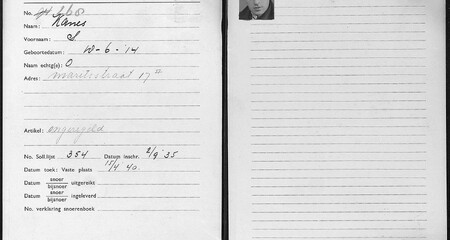 No.
Naam: Kanes
Voornaam: S.
Geboortedatum: 10-6-'14
Naam echtg(e): O
Adres: 17
Artikel: ongeregeld
No. Soll.lijst 354 Datum inschr. 2/9 '35
Datum toek: Vaste plaats 15/4 40
Datum snoer
bijsnoer uitgereikt
Datum snoer
bijsnoer ingeleverd
No. verklaring snoerenboek